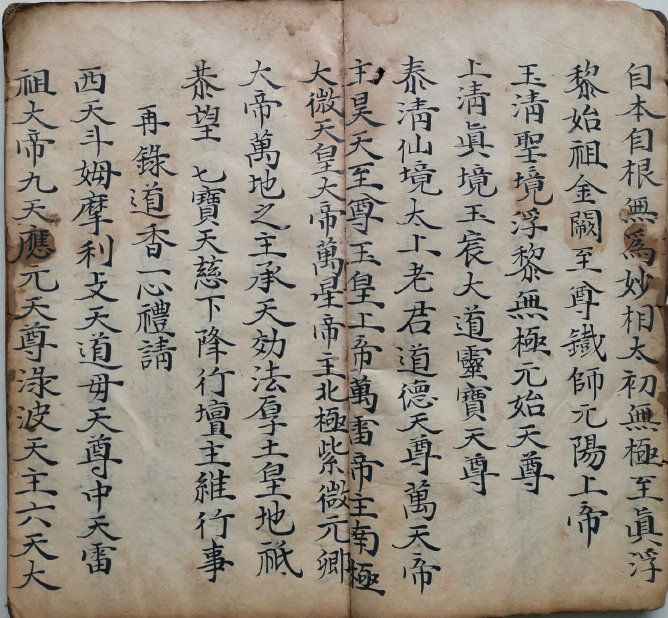 自本自根無為妙相太初無極至真浮
黎始祖金闕至尊鐵師元陽上帝
玉清聖境浮黎無極元始天尊
上清真境玉宸大道靈寶天尊
泰清仙境太上老君道德天尊萬天帝
主昊天至尊玉皇上帝萬雷帝主南極
大微天皇大帝萬星帝主北極紫微元卿
大帝萬地之主承天効法厚土皇地祇
恭望七寶天慈下降行壇主維行事
再錄道香一心禮請
西天斗姆摩利支天道毋天尊中天雷
祖大帝九天應元天尊淥波天主六天大